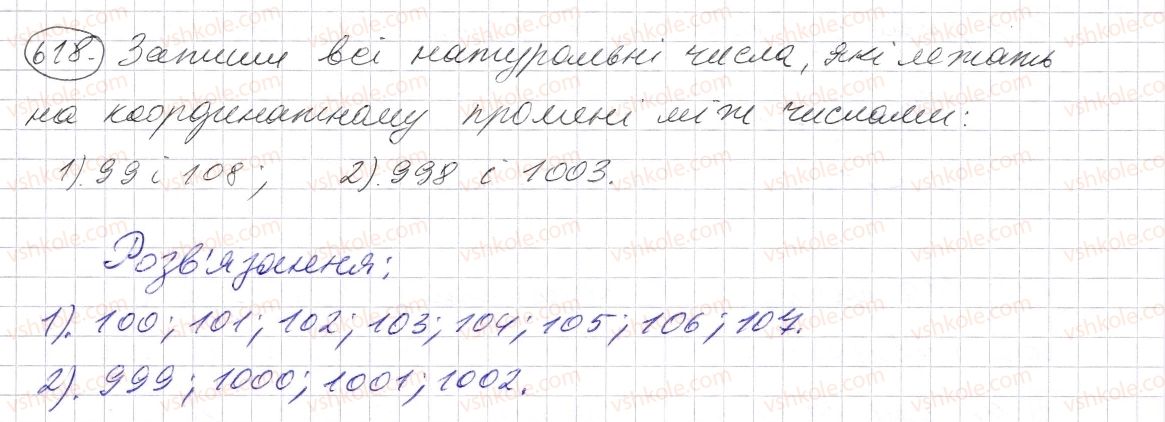 618. Запиши всі натуральні числа, які лежать
на координатному промені між числами:
1). 99 і 108; 2). 998 і 1003.
Розв'язання:
1). 100; 101; 102; 103; 104; 105; 106; 107.
2). 999; 1000; 1001; 1002.